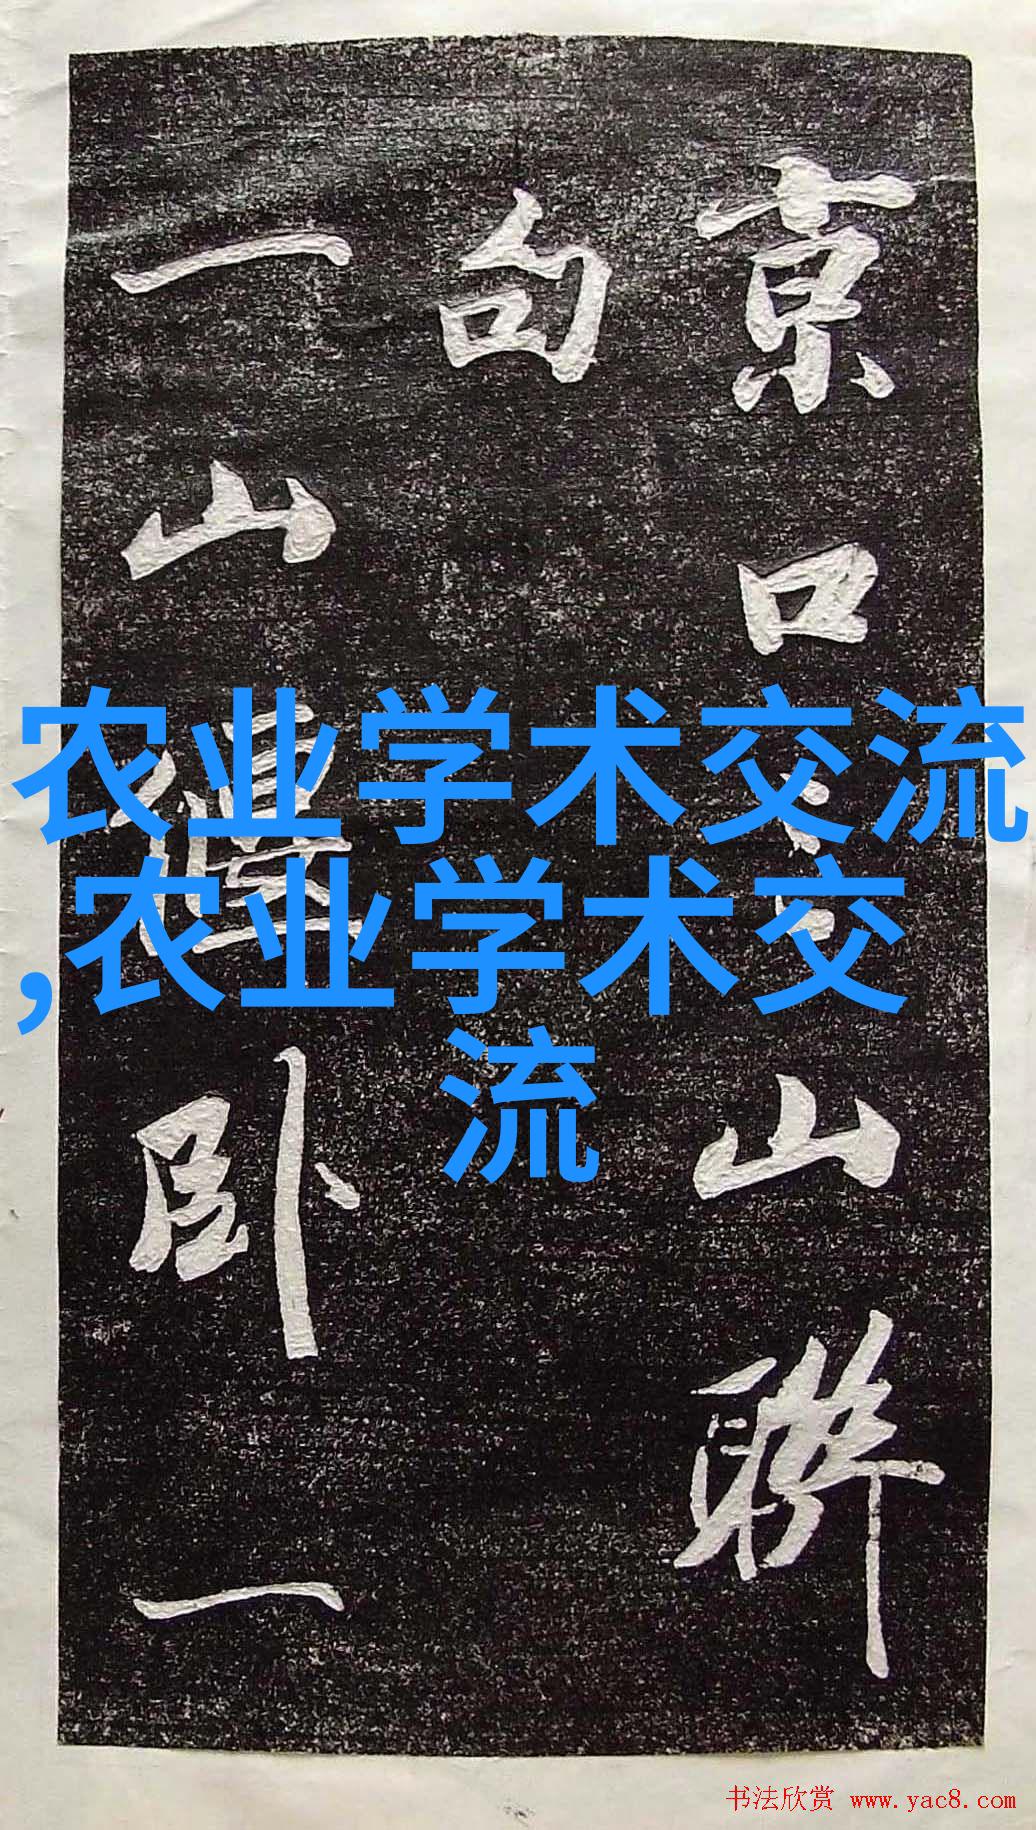 农业学术交流
,农业学术交
流
京口山聯
句
一山卧一
书法欣赏 www.yac8.com